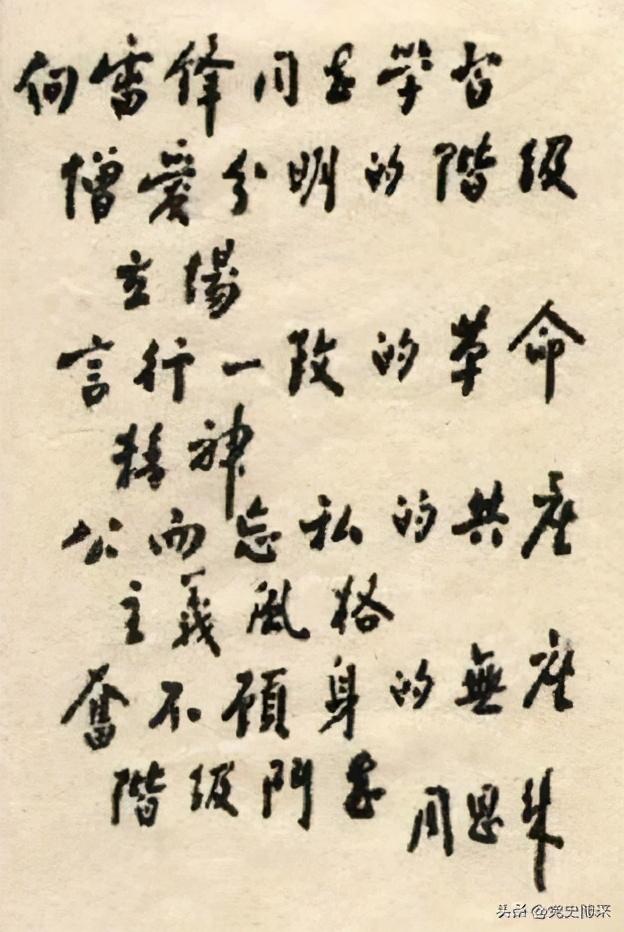 向雷锋同志学習
憎愛分明的階級
立場
言行一致的革命
精神
公而忘私的共产
主義風格
奮不顧身的無产
階级鬥志
周恩来
头条 @党史博采